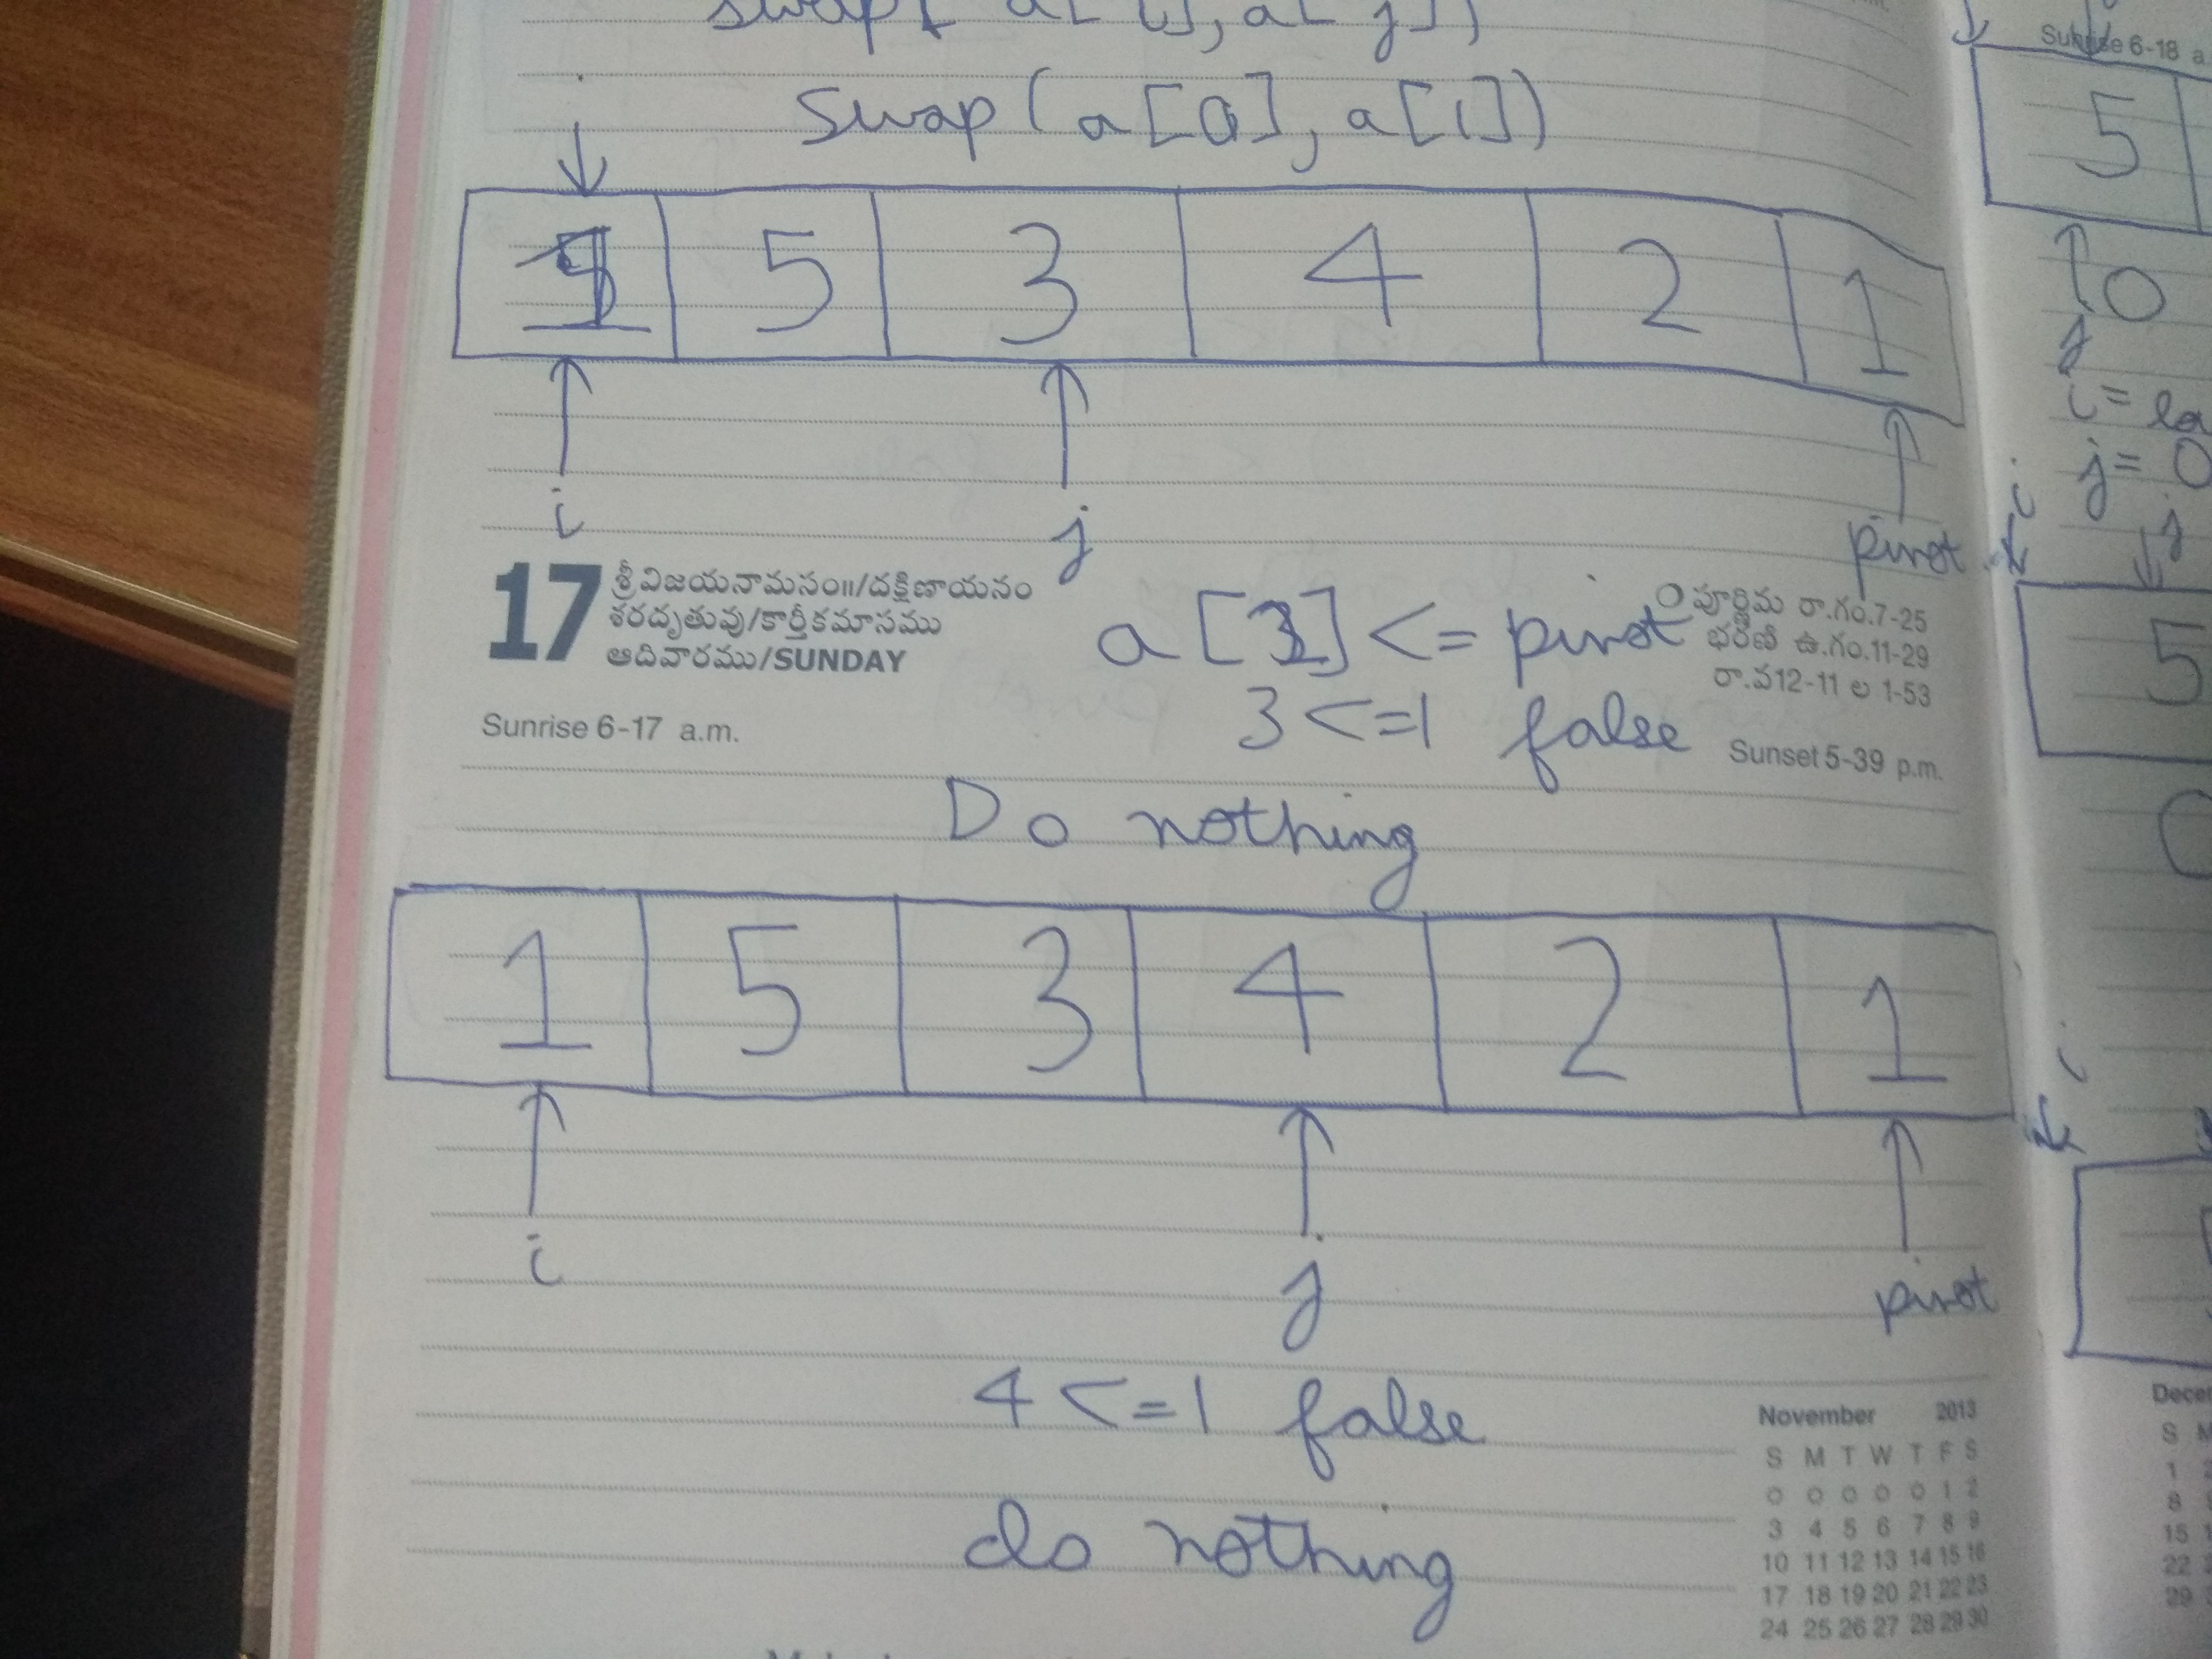 swap( a[i], a[j])
swap(a[0], a[1])
5 3 4 2 1
i j pivot
17 శ్రీ విజయనామసం॥/దక్షిణాయనం
శరదృతువు/కార్తీకమాసము
ఆదివారము/SUNDAY
పూర్ణిమ రా.గం.7-25
భరణి ఉ.గం.11-29
రా.వ12-11 ల 1-53
Sunrise 6-17 a.m.
a[2] <= pivot
3 <=1 false
Sunset 5-39 p.m.
Do nothing
1 5 3 4 2 1
i j pivot
4 <=1 false
do nothing
November 2013
S M T W T F S
0 0 0 0 0 1 2
3 4 5 6 7 8 9
10 11 12 13 14 15 16
17 18 19 20 21 22 23
24 25 26 27 28 29 30
Sunrise 6-18 a.
5
0
j
i=
j= 0
i j
5
i
S M
1
8
15
22
29